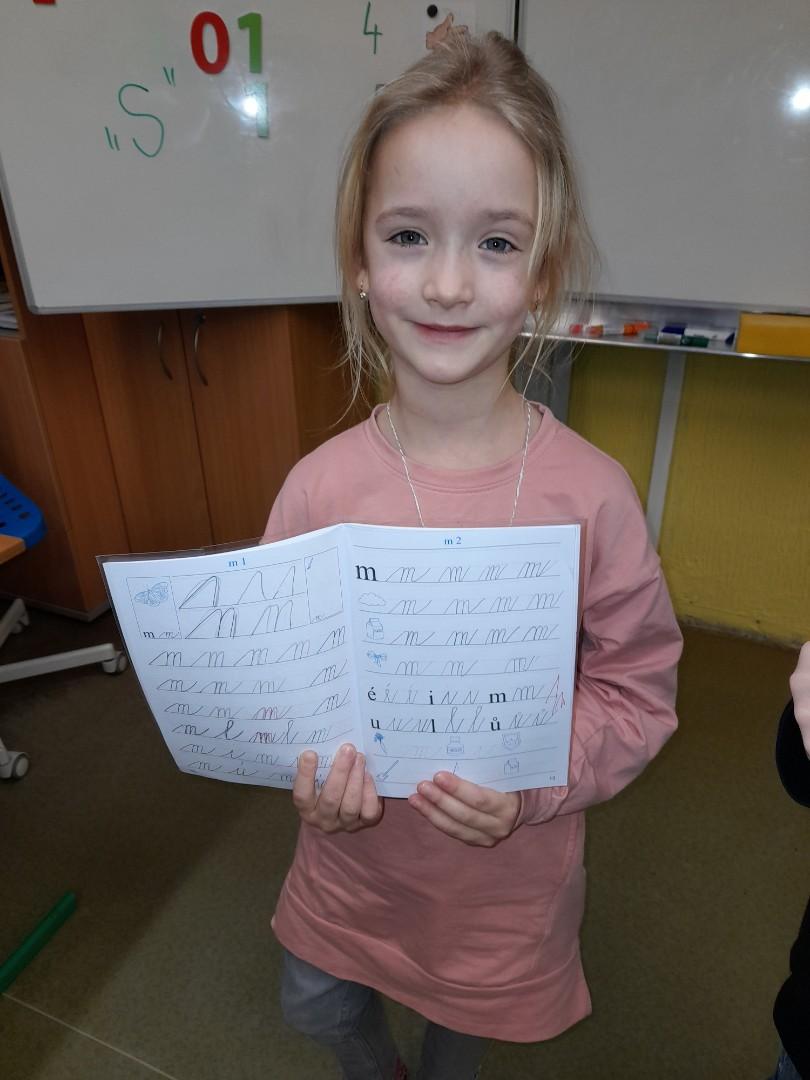 01 4
„S" 1
m 1
m m
m m m m m
m m m m
m m m m
m l m l m
m i m m
m ů m m
m 2
m m m m m
m m m m
m m m m
m m m
é é é i i i m m
u u u l l l ů ů ů